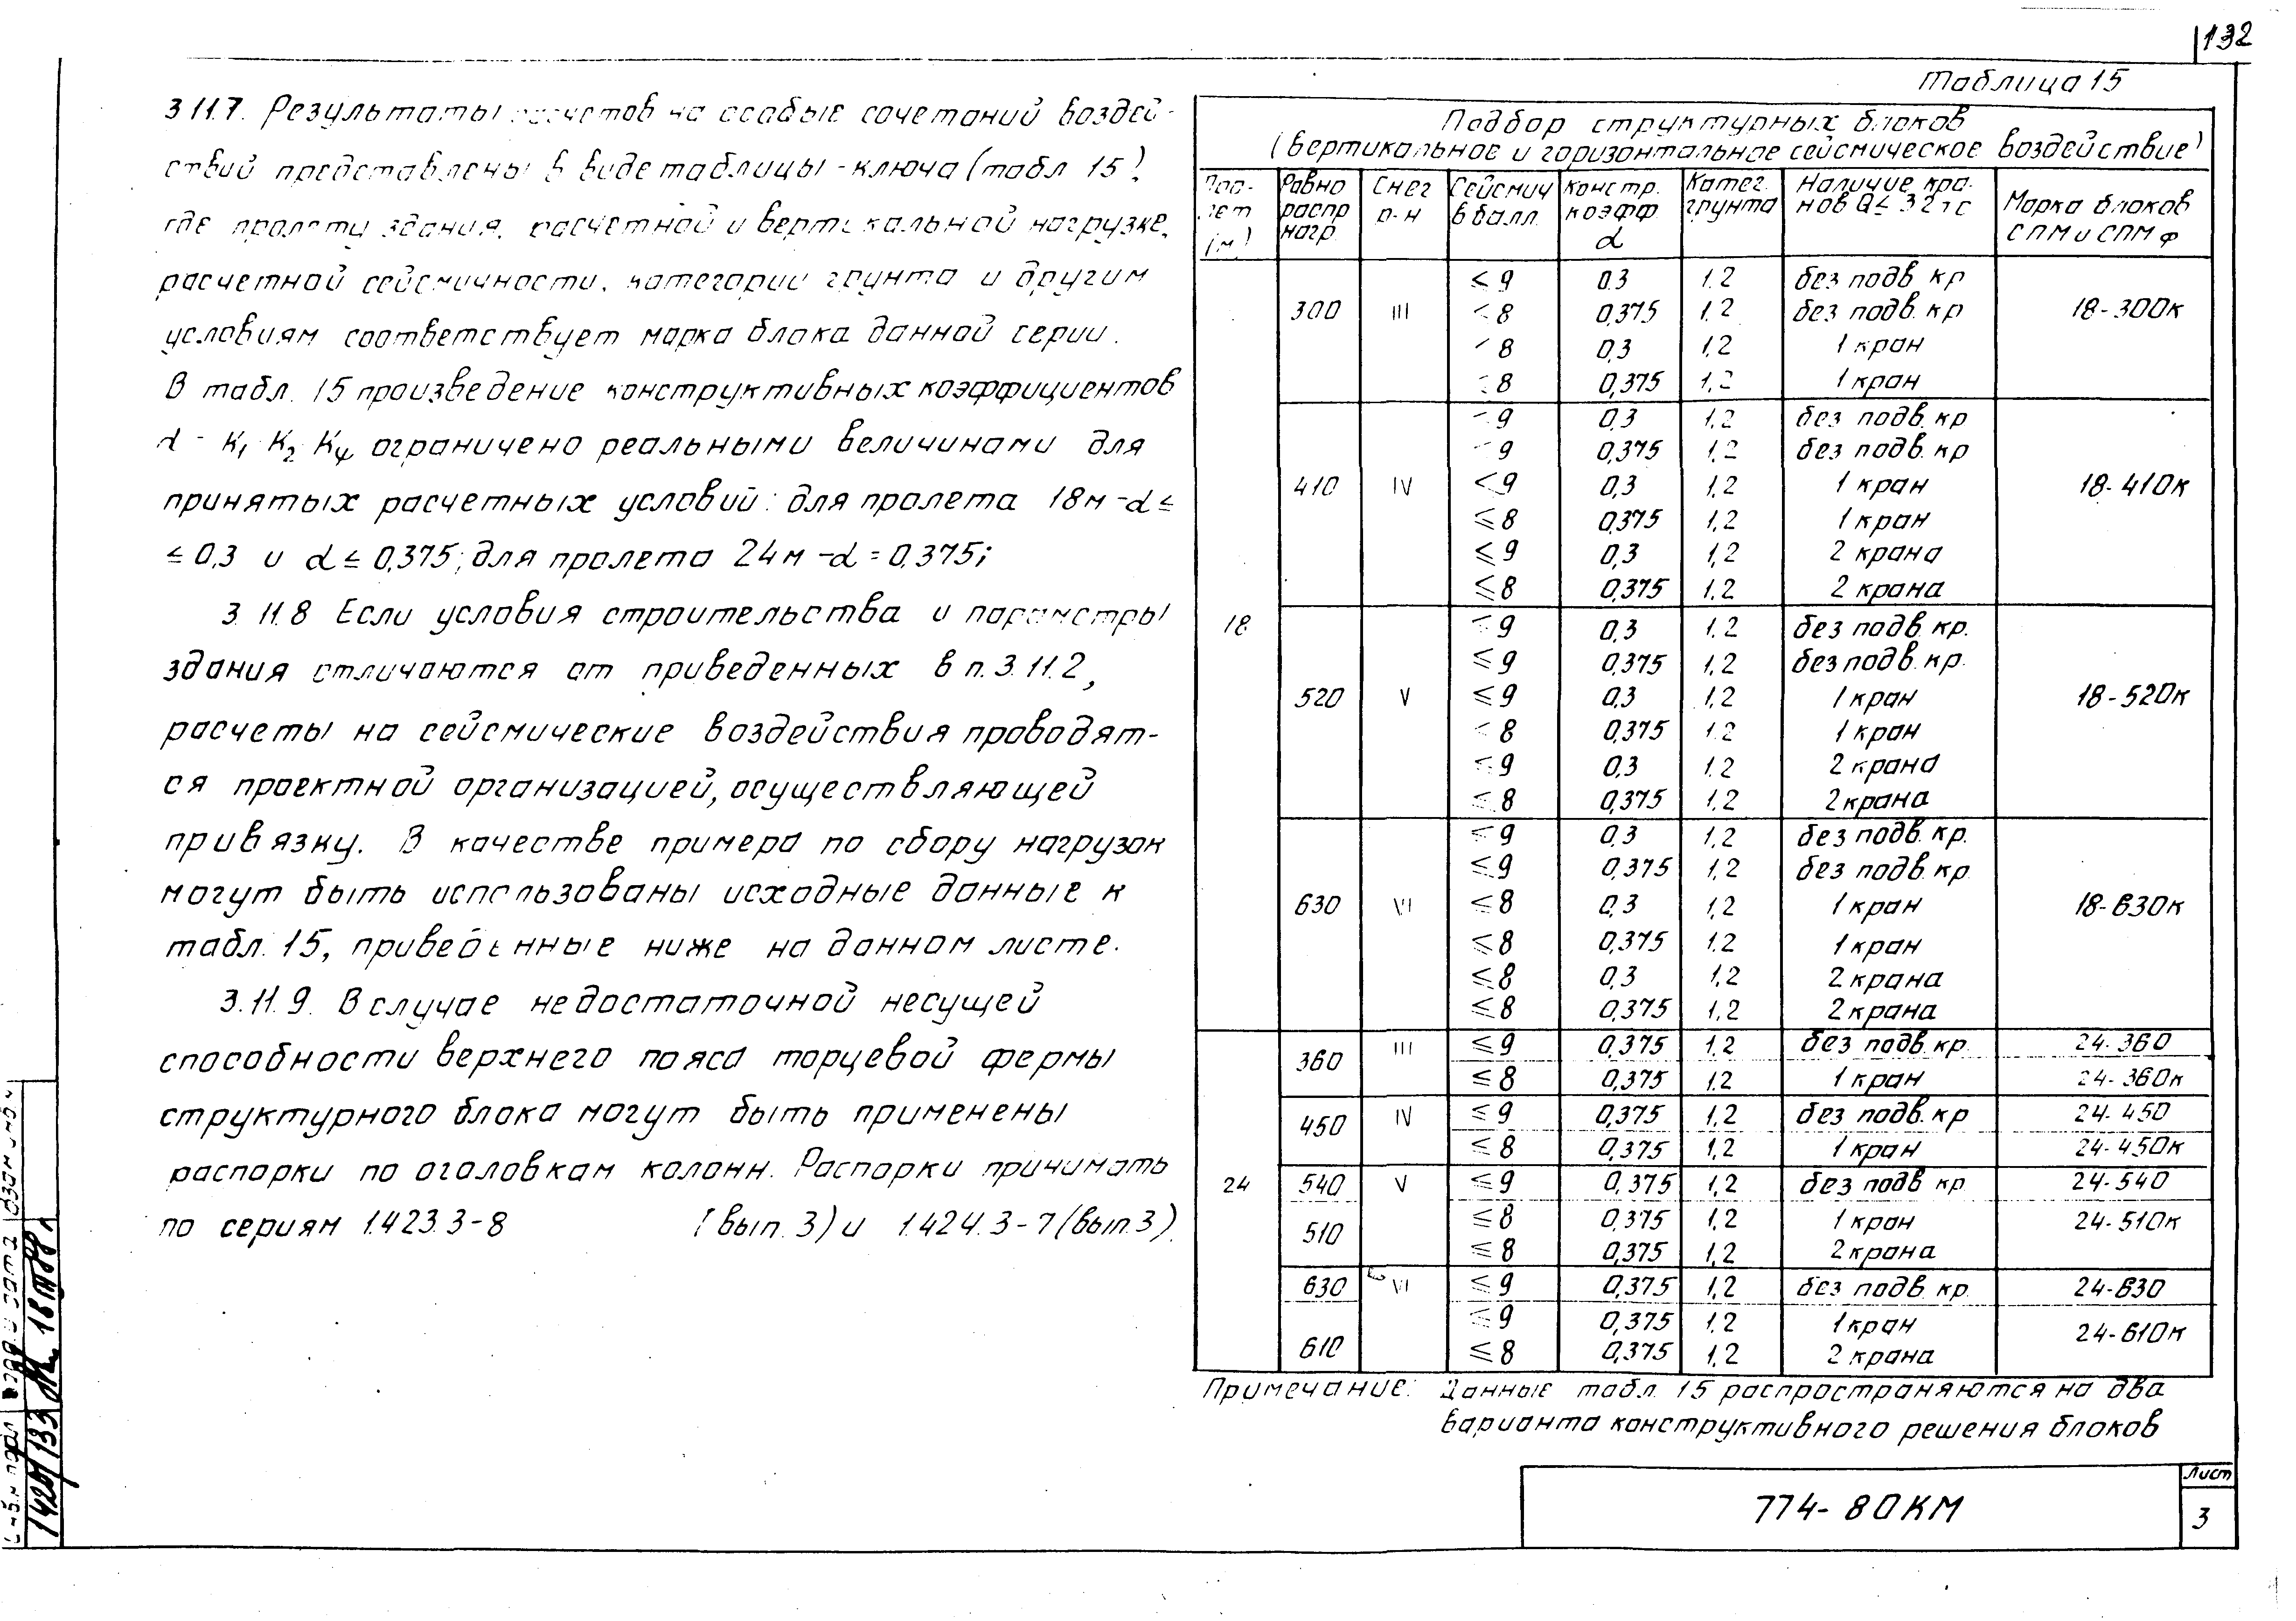 132
3.11.7. Результаты расчетов на особые сочетаний воздей-
ствий представлены в виде таблицы-ключа (табл 15),
где пролету здания, расчетной и вертикальной нагрузке,
расчетной сейсмичности, категории грунта и другим
условиям соответствует марка блока данной серии.
В табл. 15 произведение конструктивных коэффициентов
α - К₁ К₂ Кψ ограничено реальными величинами для
принятых расчетных условий: для пролета 18м - α ≤
≤ 0,3 и α ≤ 0,375; для пролета 24м - α = 0,375;
3.11.8 Если условия строительства и параметры
здания отличаются от приведенных в п. 3.11.2,
расчеты на сейсмические воздействия проводят-
ся проектной организацией, осуществляющей
привязку. В качестве примера по сбору нагрузок
могут быть использованы исходные данные к
табл. 15, приведенные ниже на данном листе.
3.11.9. В случае недостаточной несущей
способности верхнего пояса торцевой фермы
структурного блока могут быть применены
распорки по оголовкам колонн. Распорки принимать
по сериям 1.423.3-8 (вып. 3) и 1.424.3-7 (вып. 3).
Таблица 15
Подбор структурных блоков
(вертикальное и горизонтальное сейсмическое воздействие)
Про-лет (м) Равно распр нагр. Снег р-н Сейсмич в балл. Констр. коэфф. α Катег. грунта Наличие кра-нов Q ≤ 3,2 тс Марка блоков СПМ и СПМф
18 300 III ≤ 9 0,3 1,2 без подв. кр 18-300к
≤ 8 0,375 1,2 без подв. кр
8 0,3 1,2 1 кран
8 0,375 1,2 1 кран
410 IV 9 0,3 1,2 без подв. кр 18-410к
9 0,375 1,2 без подв. кр
≤ 9 0,3 1,2 1 кран
≤ 8 0,375 1,2 1 кран
≤ 9 0,3 1,2 2 крана
≤ 8 0,375 1,2 2 крана
520 V ≤ 9 0,3 1,2 без подв. кр. 18-520к
≤ 9 0,375 1,2 без подв. кр.
≤ 9 0,3 1,2 1 кран
≤ 8 0,375 1,2 1 кран
≤ 9 0,3 1,2 2 крана
≤ 8 0,375 1,2 2 крана
630 VI ≤ 9 0,3 1,2 без подв. кр. 18-630к
≤ 9 0,375 1,2 без подв. кр.
≤ 8 0,3 1,2 1 кран
≤ 8 0,375 1,2 1 кран
≤ 8 0,3 1,2 2 крана
≤ 8 0,375 1,2 2 крана
24 360 III ≤ 9 0,375 1,2 без подв. кр. 24-360
≤ 8 0,375 1,2 1 кран 24-360к
450 IV ≤ 9 0,375 1,2 без подв. кр 24-450
≤ 8 0,375 1,2 1 кран 24-450к
540 V ≤ 9 0,375 1,2 без подв кр 24-540
510 ≤ 8 0,375 1,2 1 кран 24-510к
≤ 8 0,375 1,2 2 крана
630 VI ≤ 9 0,375 1,2 без подв. кр. 24-630
610 ≤ 9 0,375 1,2 1 кран 24-610к
≤ 8 0,375 1,2 2 крана
Примечание: Данные табл. 15 распространяются на два
варианта конструктивного решения блоков
774-80КМ
Лист
3